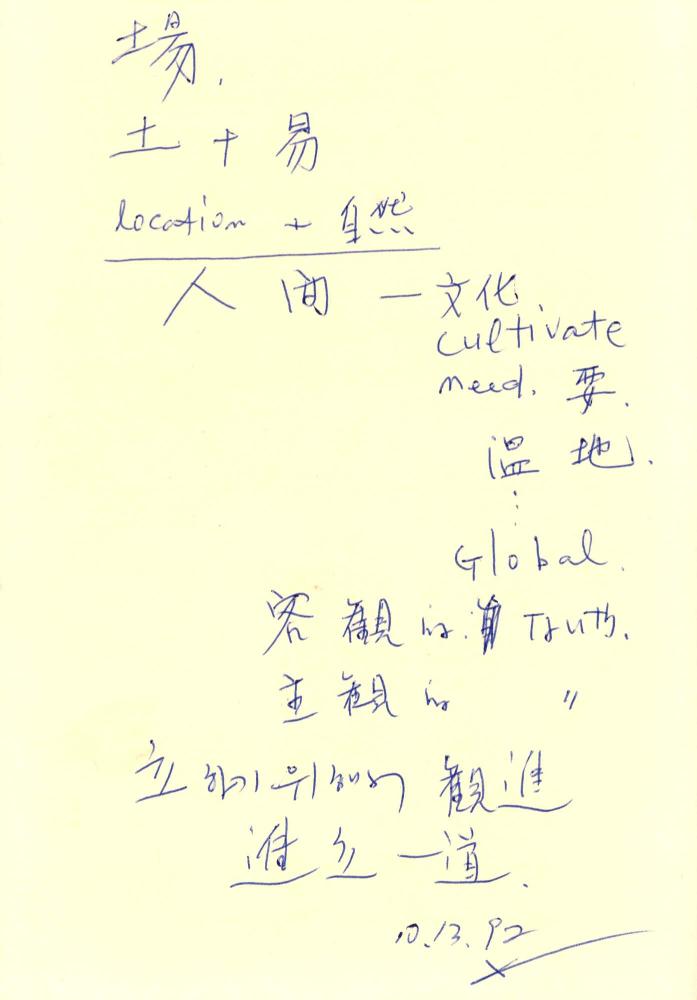 場.
土 + 易
location + 自然
人 間 — 文化.
cultivate
need. 要.
温 地.
⋮
Global.
客 観 的. Truth.
主 観 的 〃
立 하기 위해서 観進
進 立 一道.
10.13.92